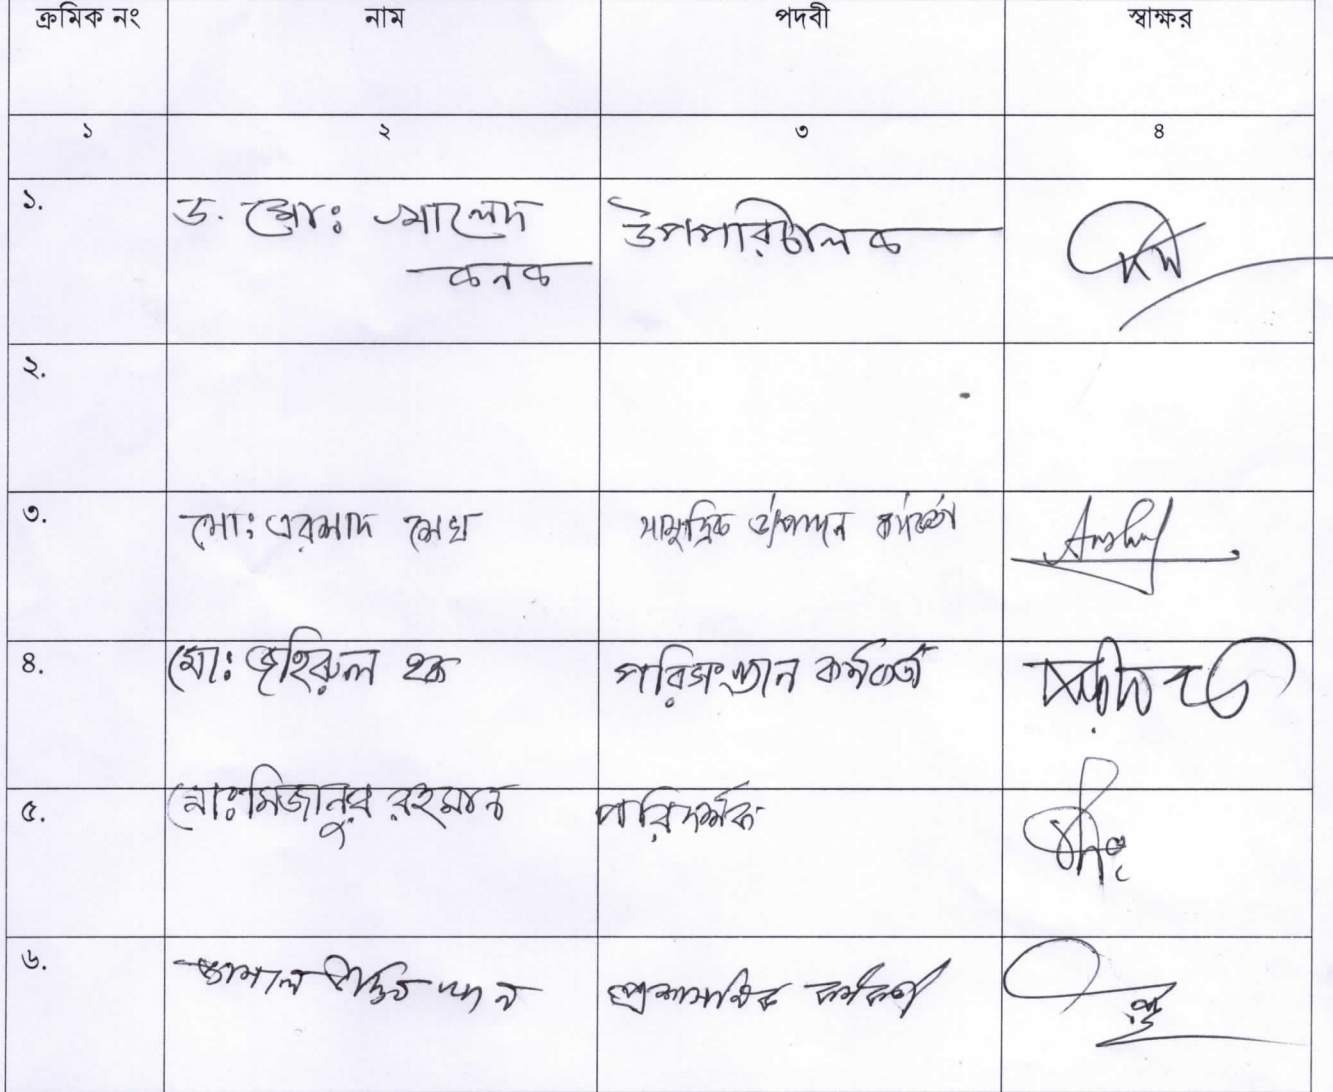 ক্রমিক নং নাম পদবী স্বাক্ষর
১ ২ ৩ ৪
১. ড. মোঃ খালেদ উপপরিচালক
কনক
২.
৩. মোঃ এরশাদ শেখ সামুদ্রিক কর্মকর্তা
৪. মোঃ জহিরুল হক পরিসংখ্যান কর্মকর্তা
৫. মোঃ মিজানুর রহমান পরিদর্শক
৬. প্রশাসনিক কর্মকর্তা